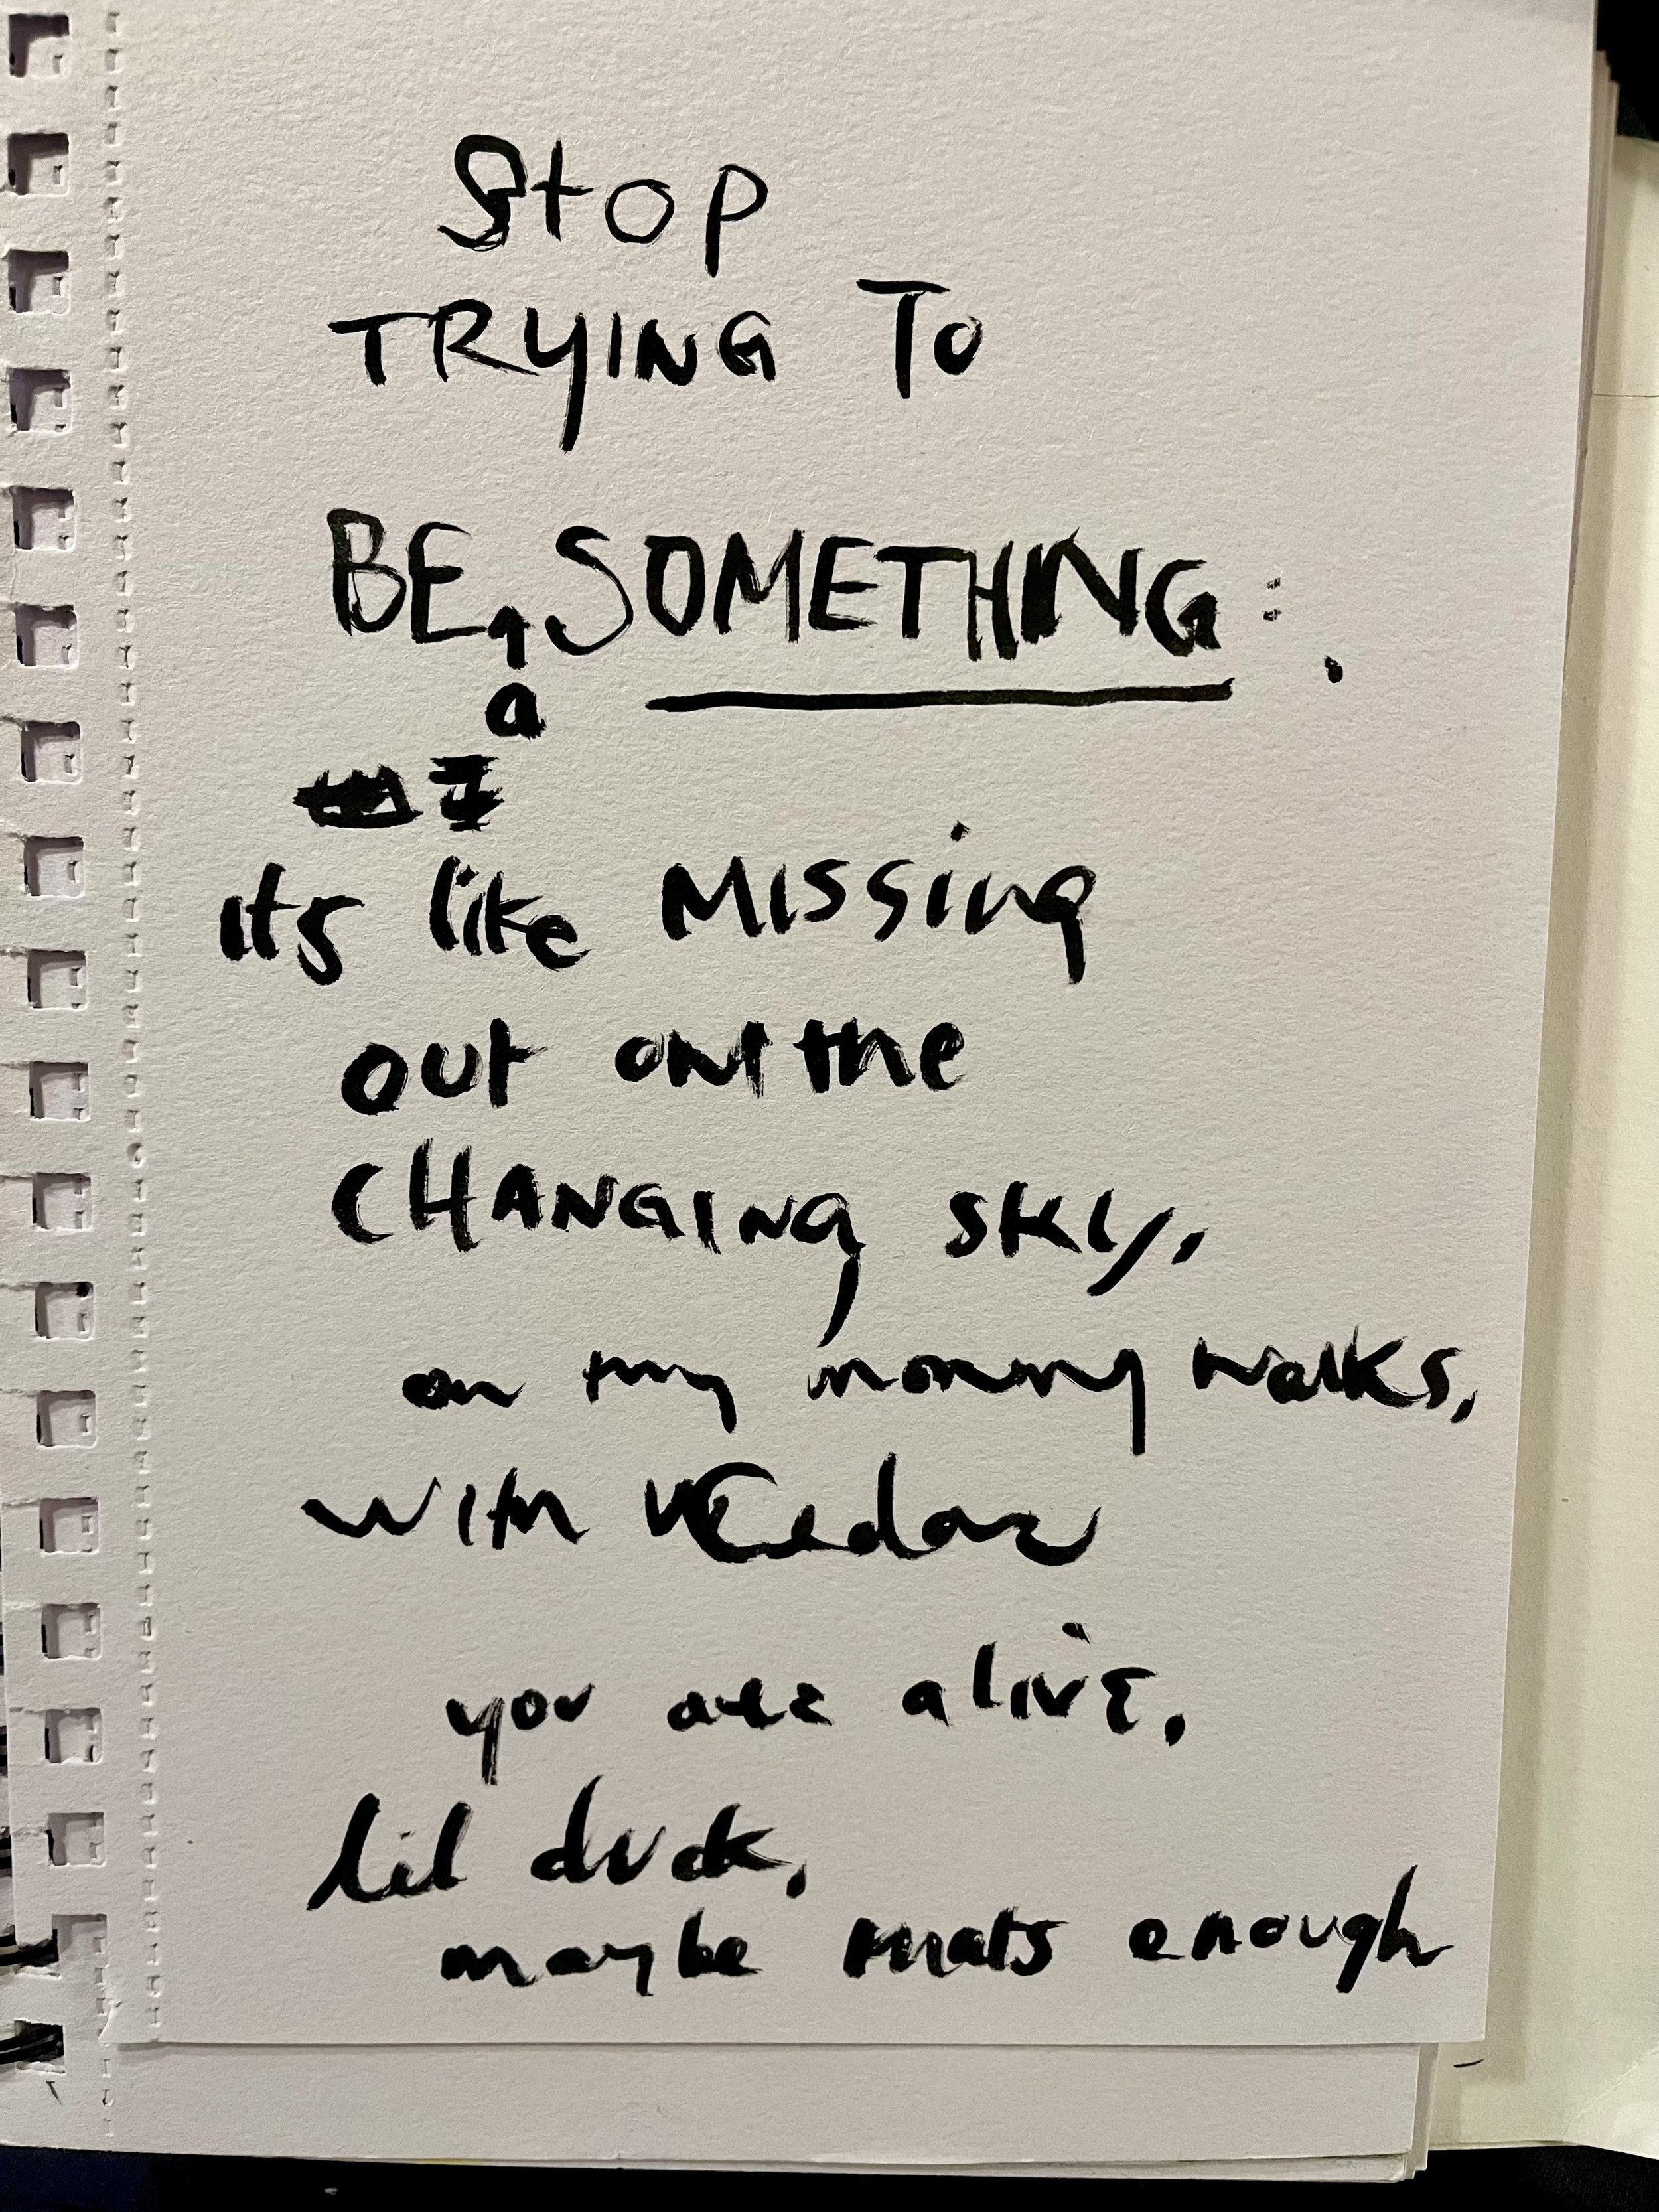 Stop
TRYING To
BE SOMETHING:.
a
its like Missing
out on the
CHANGING sky,
on my morning walks,
with Cedar
you are alive,
lil duck,
maybe thats enough